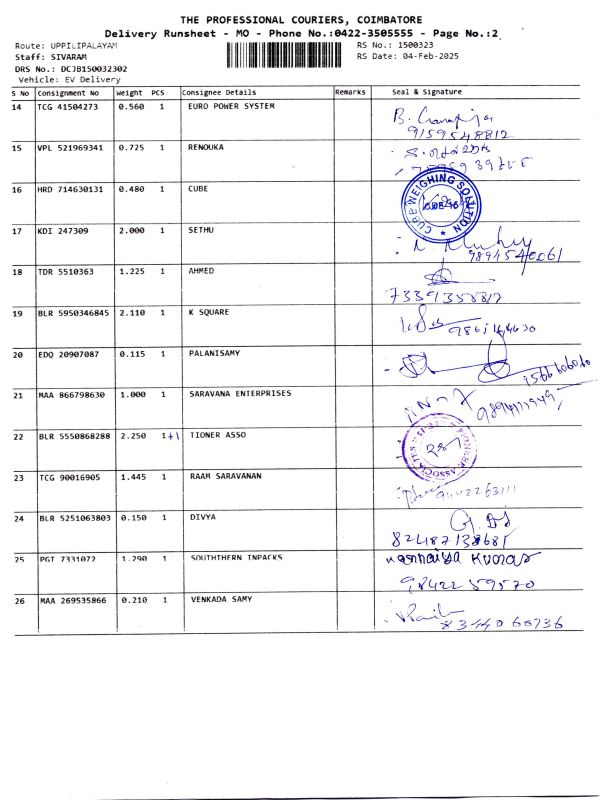 THE PROFESSIONAL COURIERS, COIMBATORE
Delivery Runsheet - MO - Phone No.:0422-3505555 - Page No.:2
Route: UPPILIPALAYAM RS No.: 1500323
Staff: SIVARAM RS Date: 04-Feb-2025
DRS No.: DCJB150032302
Vehicle: EV Delivery
S No Consignment No Weight PCS Consignee Details Remarks Seal & Signature
14 TCG 41504273 0.560 1 EURO POWER SYSTEM
9159548812
15 VPL 521969341 0.725 1 RENOUKA
16 HRD 714630131 0.480 1 CUBE
CUBE WEIGHING SOLUTION
17 KDI 247309 2.000 1 SETHU
9894540061
18 TDR 5510363 1.225 1 AHMED
7339135881 2
19 BLR 5950346845 2.110 1 K SQUARE
20 EDQ 20907087 0.115 1 PALANISAMY
21 MAA 866798630 1.000 1 SARAVANA ENTERPRISES
22 BLR 5550868288 2.250 1+1 TIONER ASSO
ASSOCIATES
23 TCG 90016905 1.445 1 RAAM SARAVANAN
24 BLR 5251063803 0.150 1 DIVYA
25 PGT 7331072 1.290 1 SOUTHTHERN INPACKS
Kannaiya Kumar
9842259570
26 MAA 269535866 0.210 1 VENKADA SAMY
8344066736